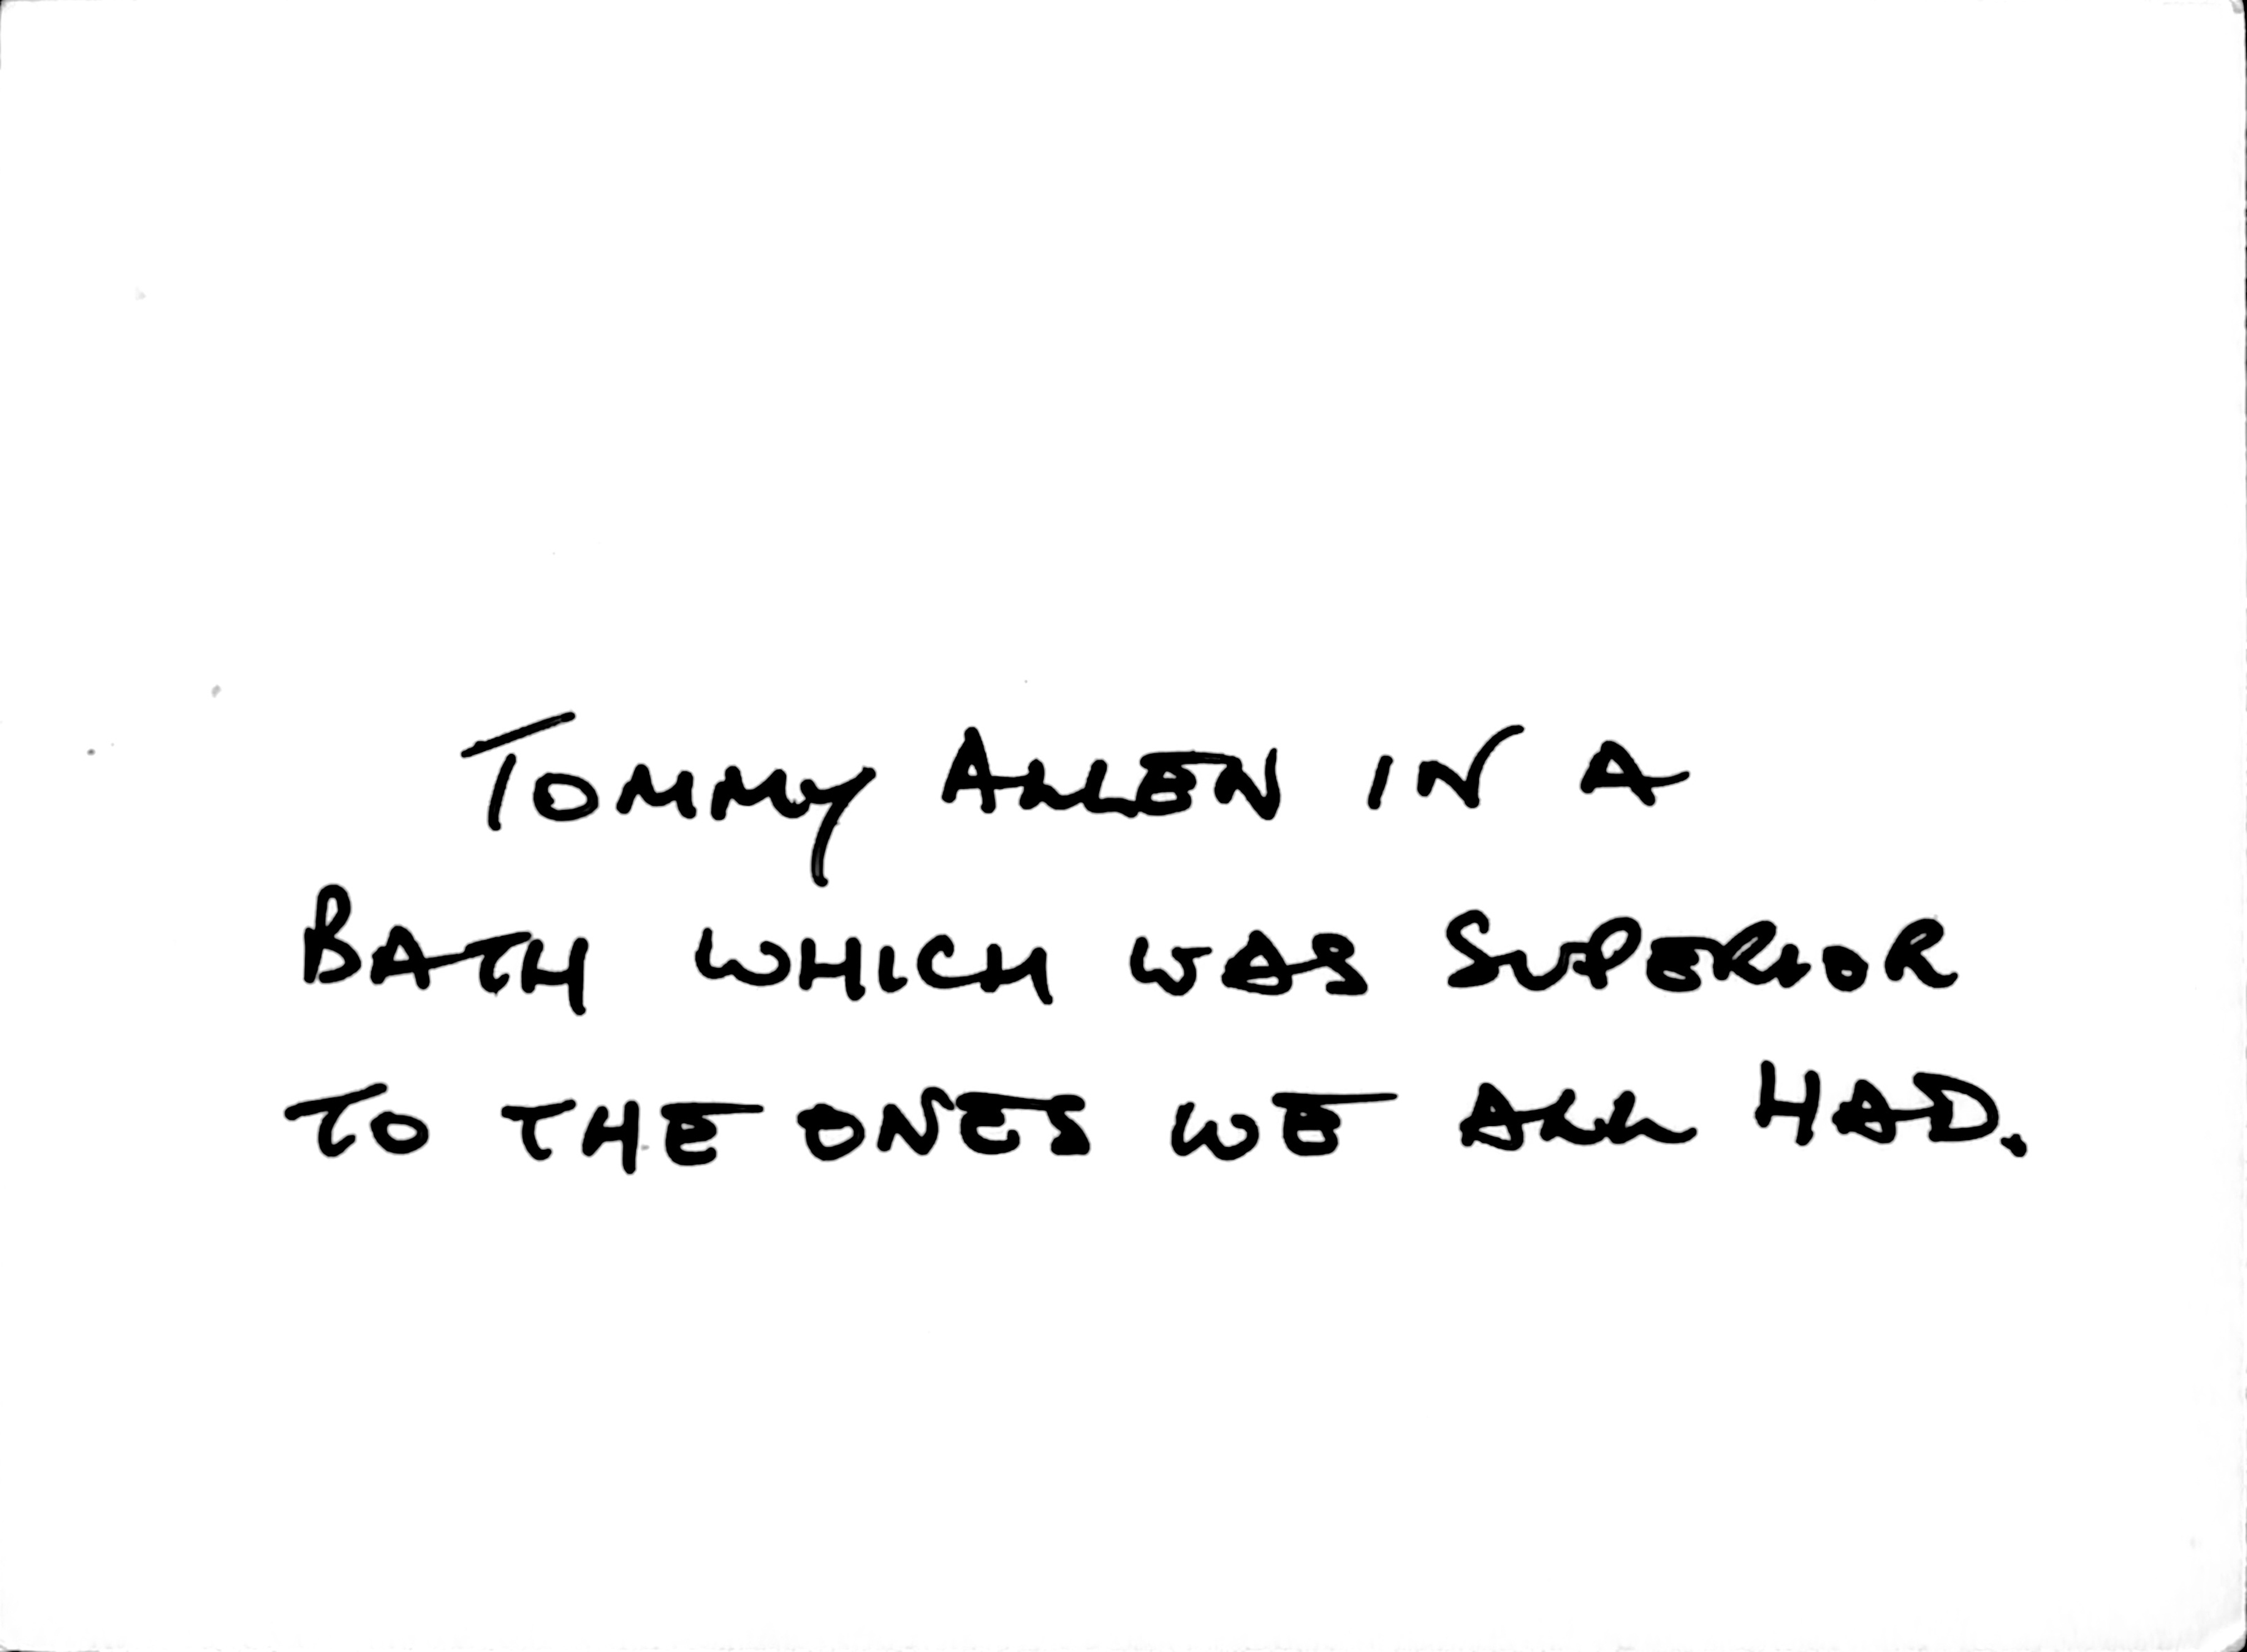 TOMMY ALLEN IN A
BATH WHICH WAS SUPERIOR
TO THE ONES WE ALL HAD.